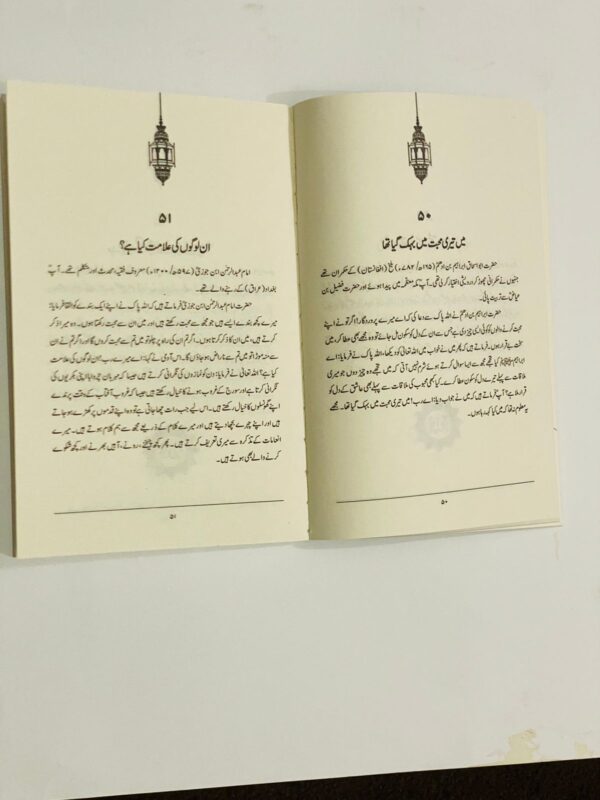 ۵۰
میں تیری محبت میں بہک گیا تھا
حضرت ابو اسحاق ابراہیم بن ادھم (۱۶۵ھ/۷۸۲ء) بلخ (افغانستان) کے حکمران تھے
جنہوں نے حکمرانی چھوڑ کر درویشی اختیار کر لی تھی۔ آپؒ مکہ معظمہ میں پیدا ہوئے اور حضرت فضیل بن
عیاضؒ سے تربیت پائی۔
حضرت ابراہیم بن ادھمؒ نے اللہ پاک سے دعا کی کہ اے میرے پروردگار! اگر تو نے اپنے
محبت کرنے والوں کو کوئی ایسی چیز دی ہے جس سے ان کے دل کو سکون مل جائے تو وہ مجھے بھی عطا کر، میں
بے قرار ہوں۔ فرماتے ہیں کہ پھر میں نے خواب میں اللہ تعالیٰ کو دیکھا، اللہ پاک نے فرمایا: اے
ابراہیم! کیا تجھے مجھ سے ایسا سوال کرتے ہوئے شرم نہیں آئی کہ میں تجھے وہ چیز دوں جو میری
ملاقات سے پہلے تیرے دل کو سکون عطا کرے۔ کیا کبھی محبوب کی ملاقات سے پہلے بھی عاشق کے دل کو
قرار ملا ہے؟ آپؒ فرماتے ہیں کہ میں نے جواب دیا: اے رب! میں تیری محبت میں بہک گیا تھا۔ مجھے
یہ معلوم نہ تھا کہ میں کیا کہہ رہا ہوں۔
۵۰
۵۱
ان لوگوں کی علامت کیا ہے؟
امام عبدالرحمٰن ابن جوزیؒ (۵۹۷ھ/۱۲۰۰ء) معروف فقیہ، محدث اور متکلم تھے۔ آپؒ
بغداد (عراق) کے رہنے والے تھے۔
حضرت امام عبدالرحمٰن ابن جوزیؒ فرماتے ہیں کہ اللہ پاک نے اپنے ایک بندے کو القا فرمایا:
میرے کچھ بندے ایسے ہیں جو مجھ سے محبت رکھتے ہیں اور میں ان سے محبت رکھتا ہوں۔ وہ میرا ذکر
کرتے ہیں، میں ان کا ذکر کرتا ہوں۔ اگر تم ان کی راہ پر چلو تو میں تم سے محبت کروں گا اور اگر تم نے ان
سے منہ موڑا تو میں تم سے ناراض ہو جاؤں گا۔ اس آدمی نے کہا: اے میرے رب! ان لوگوں کی علامت
کیا ہے؟ اللہ تعالیٰ نے فرمایا: دن کو نمازوں کی نگرانی کرتے ہیں جیسا کہ مہربان چرواہا اپنی بکریوں کی
نگرانی کرتا ہے اور سورج کے غروب ہونے کا خیال رکھتے ہیں جیسا کہ غروب آفتاب کے وقت پرندے
اپنے گھونسلوں کا خیال رکھتے ہیں۔ اس لیے جب رات چھا جاتی ہے تو وہ اپنے قدموں پر کھڑے ہو جاتے
ہیں اور اپنے چہرے بچھا دیتے ہیں اور میرے کلام کے ذریعے مجھ سے ہم کلام ہوتے ہیں۔ میرے
انعامات کے تذکرہ سے میری تعریف کرتے ہیں۔ پھر کچھ چیختے، روتے، آہیں بھرتے اور کچھ شکوے
کرنے والے بھی ہوتے ہیں۔
۵۱